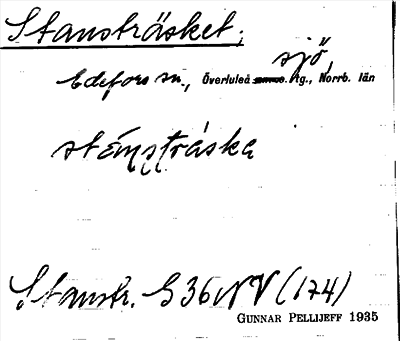 Stansträsket,
sjö,
Edefors sn., Överluleå tg., Norrb. län
stánstráska
Stanstr. G 36 NV (174)
GUNNAR PELLIJEFF 1935